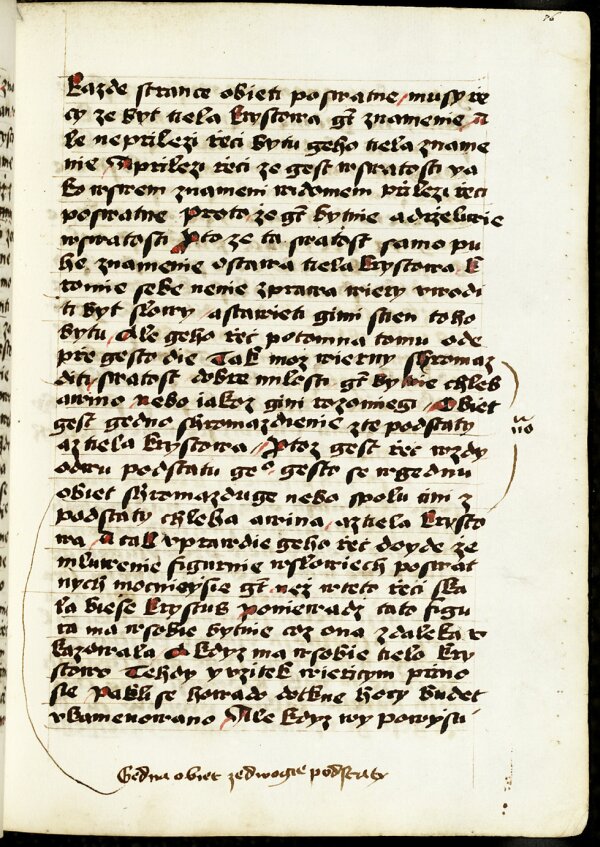 76
Kazde strance obieti poswatne musy rze
cy ze byt tiela Krystowa gt znamenie A
le neprilezi rzeci bytu geho tiela zname
nie A prilezi rzeci ze gest w swatosti ya
ko wswem znameni widomem prilezi rzeci
poswatne Proto ze gt bytnie a drzeliwie
wswatosti Pto ze ta swatost samo pu
he znamenie ostawa tiela Krystowa K
tomie sebe nenie zprawa wiery vwodi
ti byt slowy a stawieti gimi stien toho
bytu Ale geho rzec potomna tomu ode
prze gesto die Tak moz wierny shromaz
diti swatost dobre milosti gt bytnie chleb
a wino nebo iakoz gini rozomiegi Obiet
gest gedno shromazdienie zte podstaty
a z tiela Krystowa Ptoz gest rzec wzdy
odwu podstatu geo gesto se wgednu
obiet shromazduge nebo spolu cini z
podstaty chleba a wina a z tiela Krysto
wa A tak vprawdie geho rzec doyde ze
mluwenie figurnie wslowiech poswat
nych mocnieysie gt nez wteto rzeci ska
la biese Krystus Poniewadz tato figu
ra ma wsobie bytnie coz ona zdaleka v
kazowala A kdyz ma wsobie tielo Kry
stowo Tehdy y vzitek wiericym prino
sie Pakli se howado dotkne hory budet
vkamenowano Ale kdyz wy powysi
Gedna obiet ze dwogie podstaty